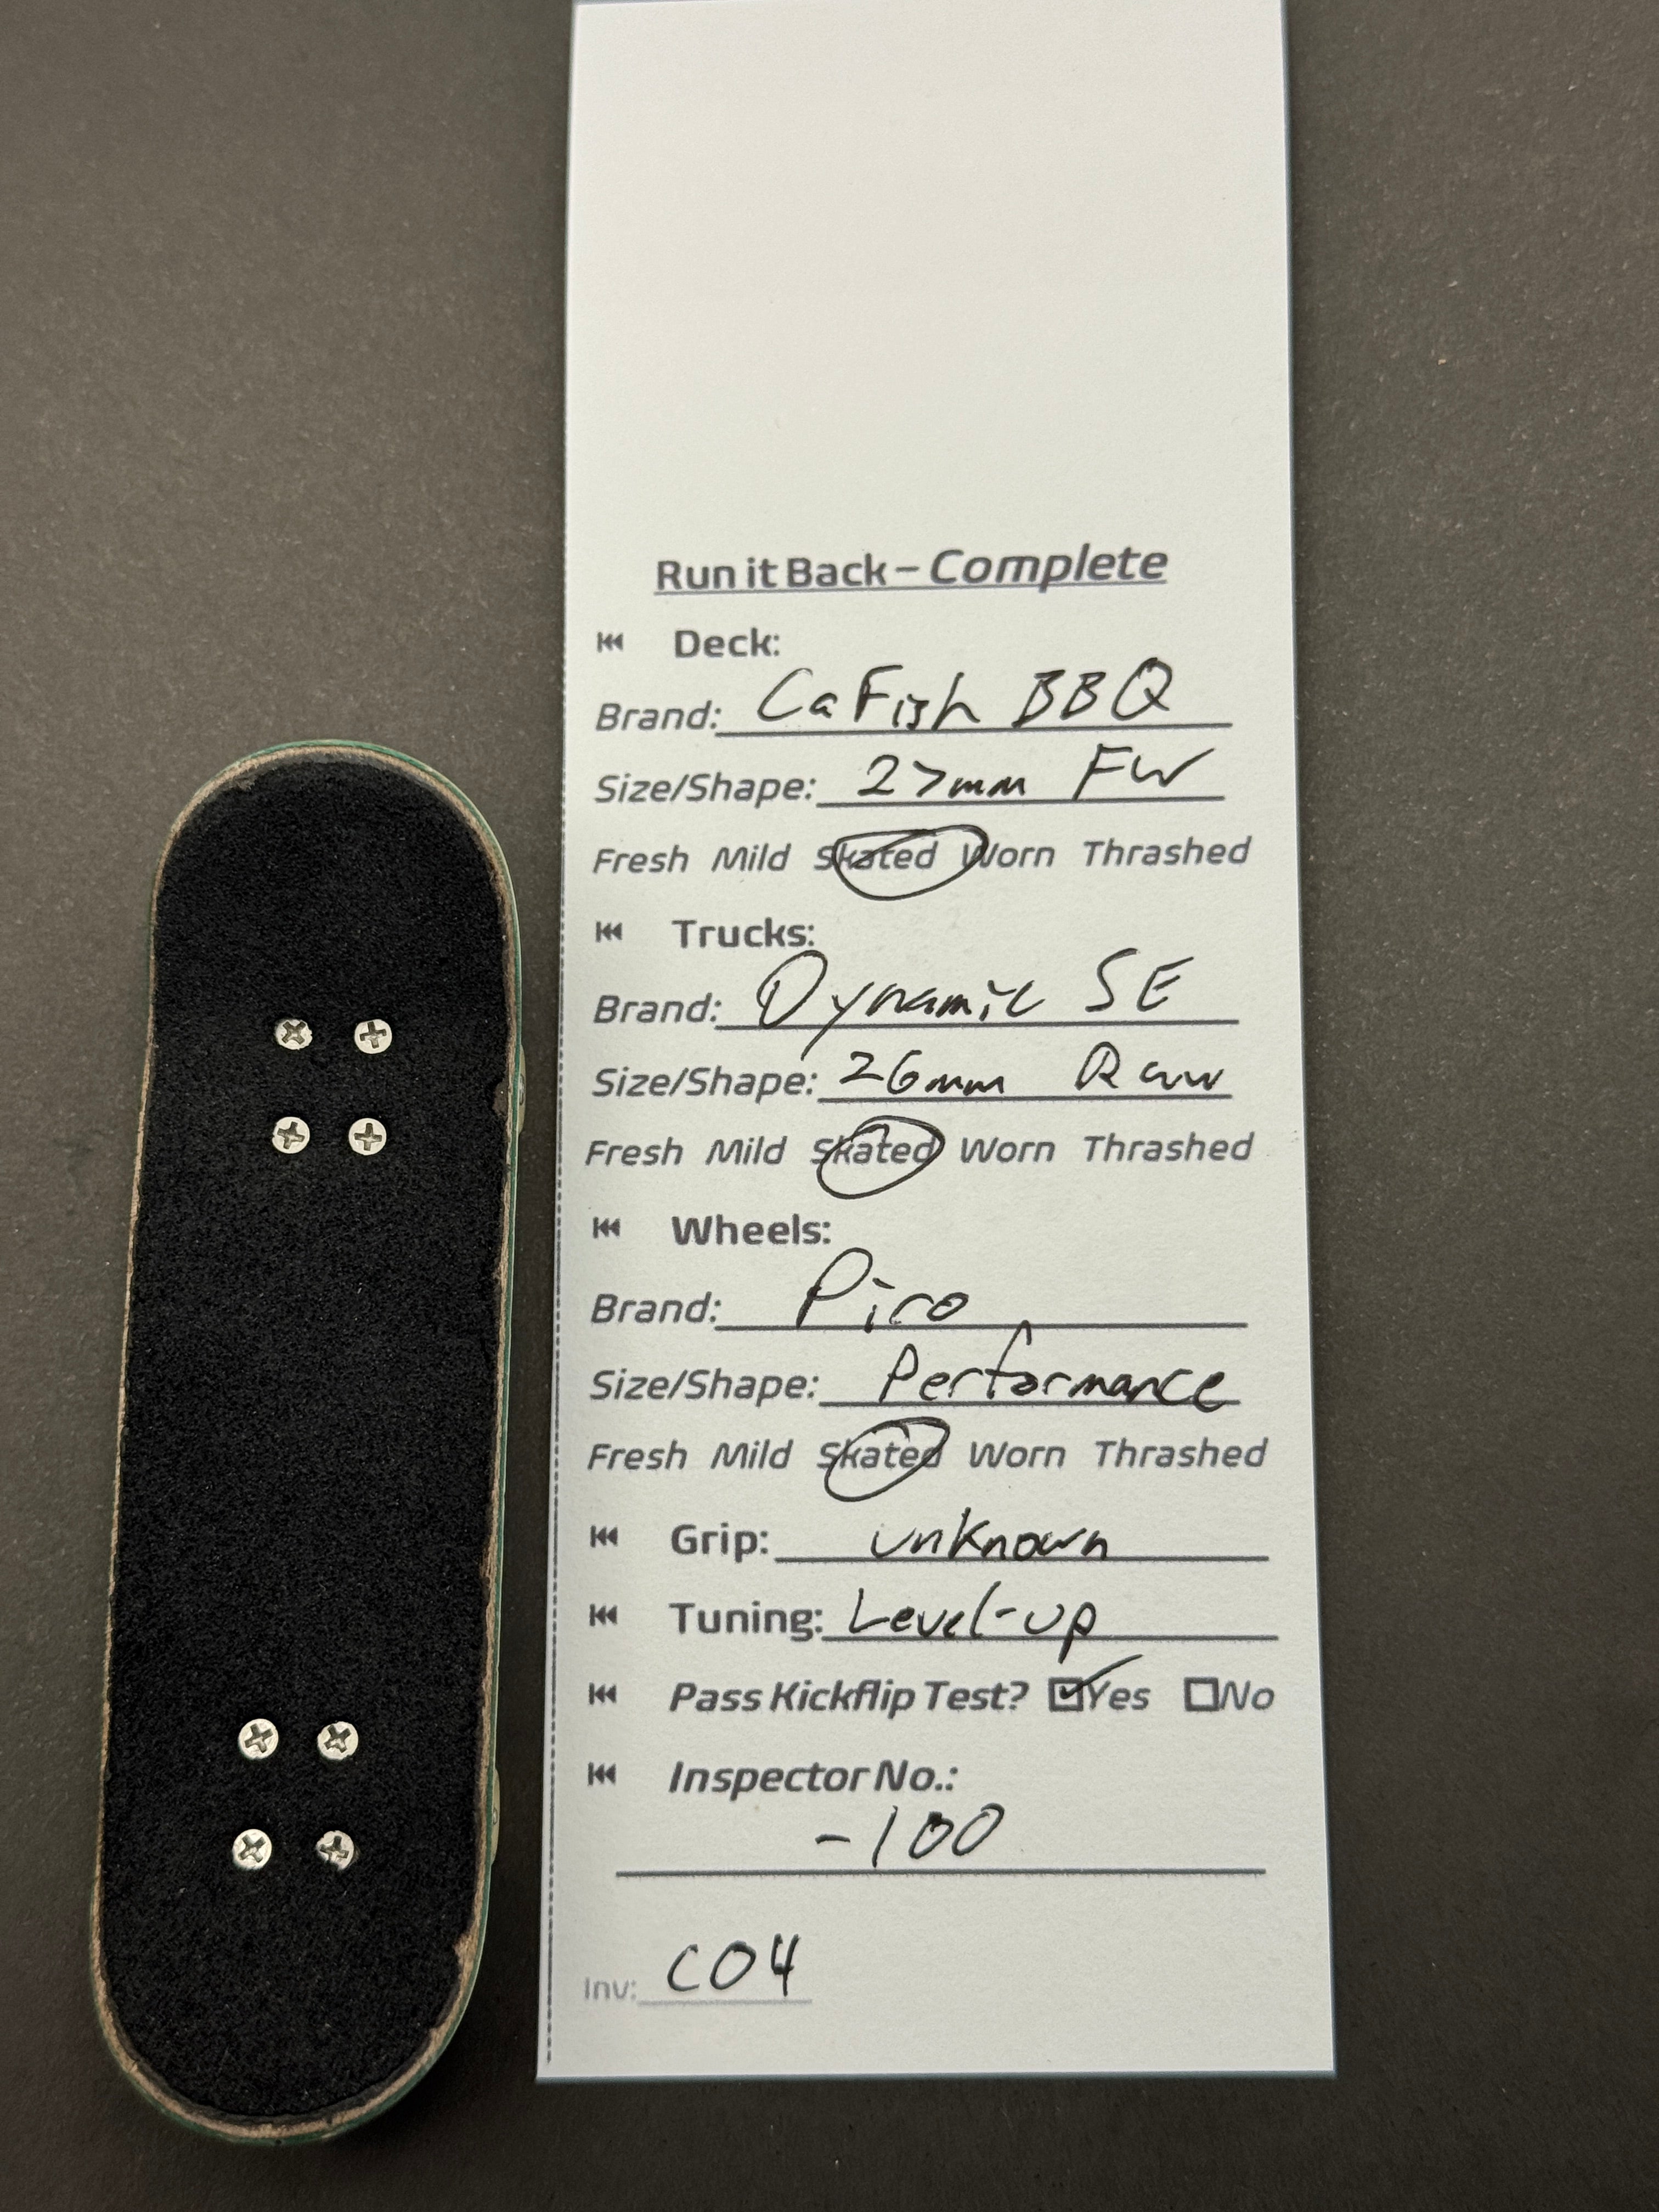 Run it Back – Complete
Deck:
Brand: CaFish BBQ
Size/Shape: 27mm FW
Fresh Mild Skated Worn Thrashed
Trucks:
Brand: Dynamic SE
Size/Shape: 26mm Raw
Fresh Mild Skated Worn Thrashed
Wheels:
Brand: Piro
Size/Shape: Performance
Fresh Mild Skated Worn Thrashed
Grip: unknown
Tuning: Level-up
Pass Kickflip Test? Yes No
Inspector No.:
-100
Inv: C04